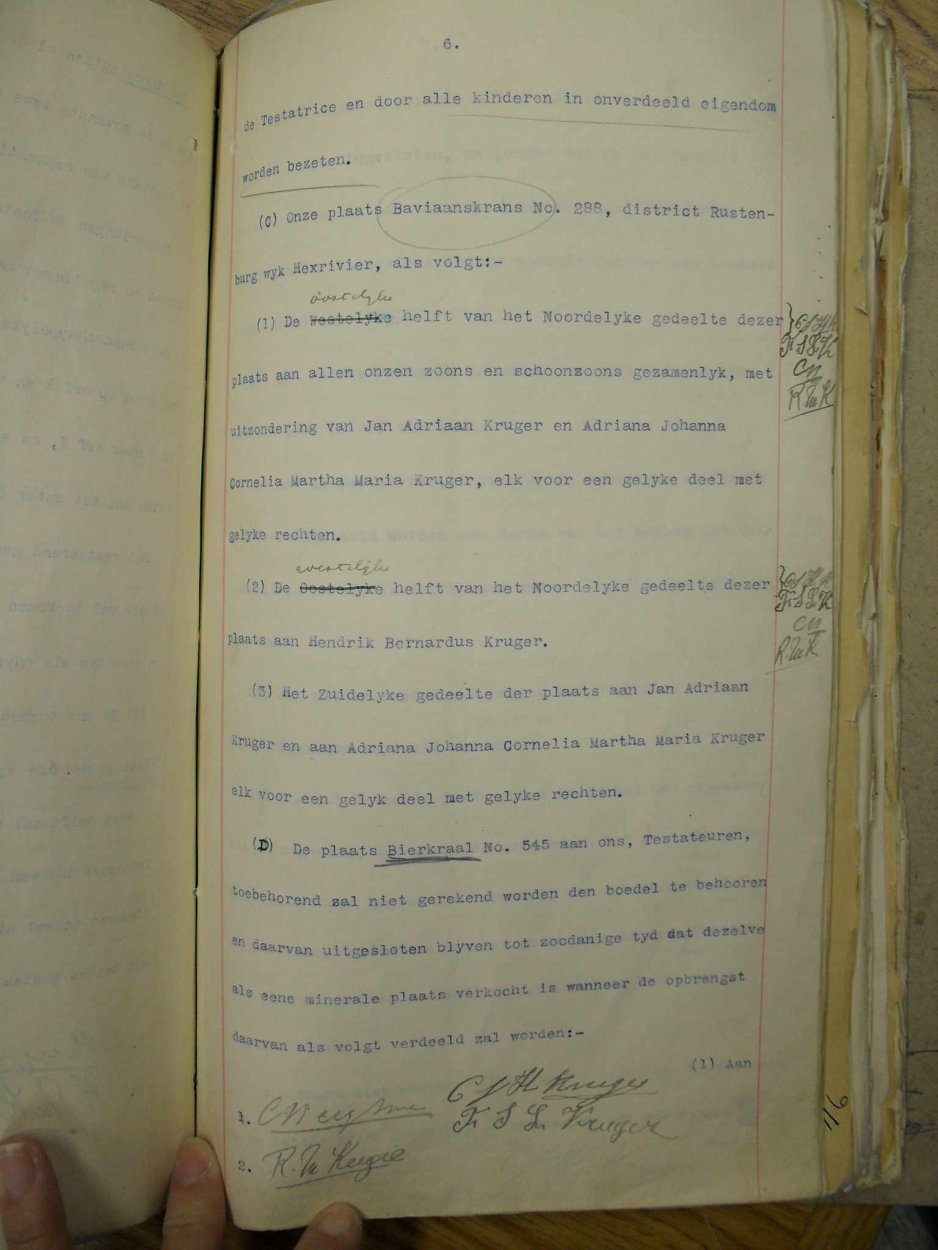 6.
de Testatrice en door alle kinderen in onverdeeld eigendom
worden bezeten.
(C) Onze plaats Baviaanskrans No. 288, district Rusten-
burg wyk Hexrivier, als volgt:-
oostelyke
(1) De Westelyke helft van het Noordelyke gedeelte dezer
C J H K
F. S L. K
CN
R. M K
plaats aan allen onzen zoons en schoonzoons gezamenlyk, met
uitzondering van Jan Adriaan Kruger en Adriana Johanna
Cornelia Martha Maria Kruger, elk voor een gelyke deel met
gelyke rechten.
westelyke
(2) De Oostelyke helft van het Noordelyke gedeelte dezer
C J H K
F. S L. K
CN
R. M K
plaats aan Hendrik Bernardus Kruger.
(3) Het Zuidelyke gedeelte der plaats aan Jan Adriaan
Kruger en aan Adriana Johanna Cornelia Martha Maria Kruger
elk voor een gelyk deel met gelyke rechten.
(D) De plaats Bierkraal No. 545 aan ons, Testateuren,
toebehorend zal niet gerekend worden den boedel te behooren
en daarvan uitgesloten blyven tot zoodanige tyd dat dezelve
als eene minerale plaats verkocht is wanneer de opbrengst
daarvan als volgt verdeeld zal worden:-
(1) Aan
C J H Kruger
1.
F S L Kruger
2. R. M Kruger